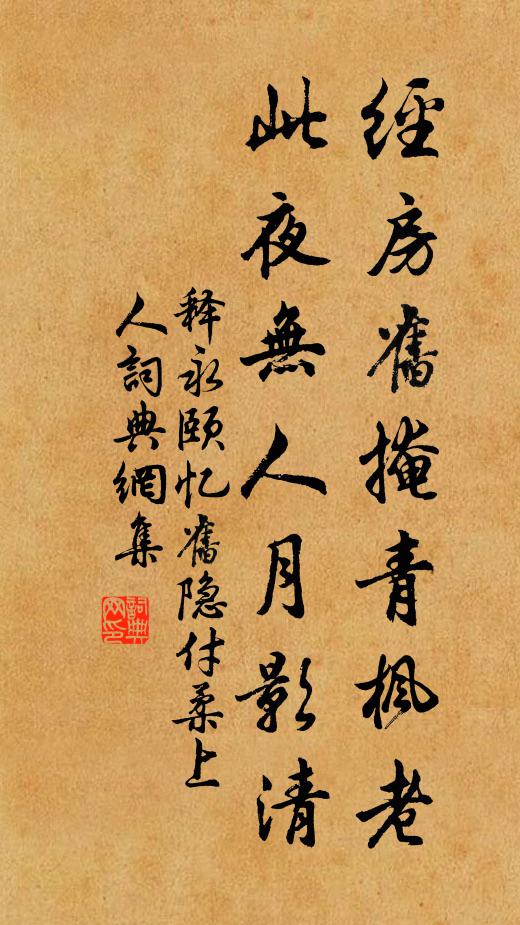 經房舊掩青楓老
此夜無人月影清
释永颐忆舊隐付柔上
人詞典網集
詞典網印